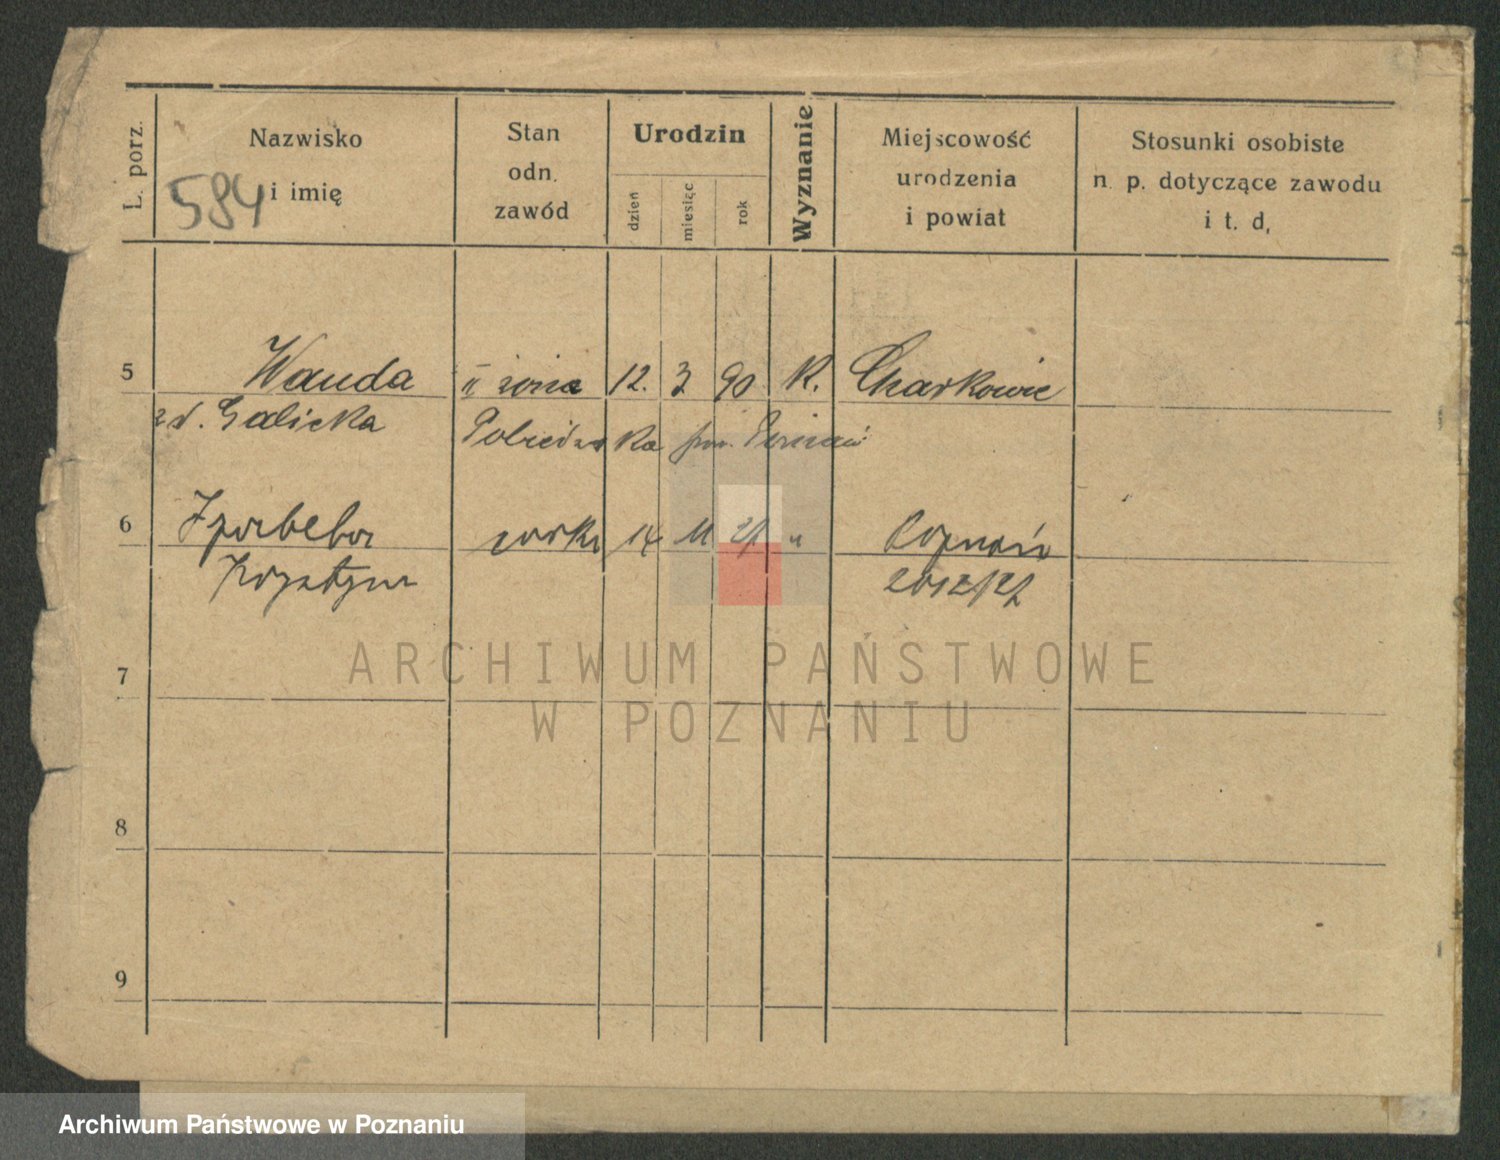 L. porz.
Nazwisko
i imię
584
Stan
odn.
zawód
Urodzin
dzień
miesiąc
rok
Wyznanie
Miejscowość
urodzenia
i powiat
Stosunki osobiste
n. p. dotyczące zawodu
i t. d.
5 Wanda II żona 12. 3 90 K.
zd. Galicka pow.
6 córka 14 11 " Poznań
ARCHIWUM PAŃSTWOWE
W POZNANIU
7
8
9
Archiwum Państwowe w Poznaniu